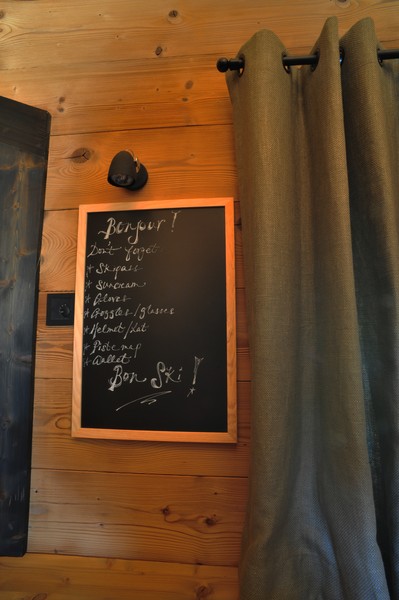 Bonjour !
Don't forget
* Skipass
* Suncream
* Gloves
* Goggles/glasses
* Helmet/hat
* Piste map
* Wallet
Bon Ski !